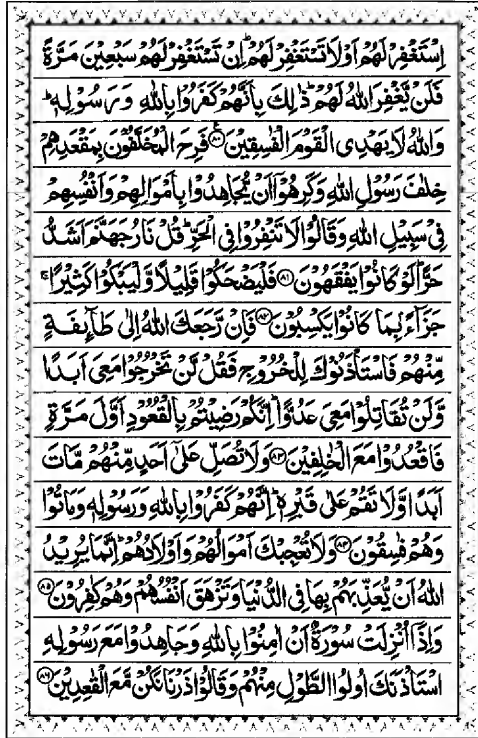 اِسْتَغْفِرْ لَهُمْ اَوْ لَا تَسْتَغْفِرْ لَهُمْ ؕ اِنْ تَسْتَغْفِرْ لَهُمْ سَبْعِيْنَ مَرَّةً
فَلَنْ يَّغْفِرَ اللّٰهُ لَهُمْ ؕ ذٰلِكَ بِاَنَّهُمْ كَفَرُوْا بِاللّٰهِ وَ رَسُوْلِهٖ ؕ
وَاللّٰهُ لَا يَهْدِى الْقَوْمَ الْفٰسِقِيْنَ ۸۰ فَرِحَ الْمُخَلَّفُوْنَ بِمَقْعَدِهِمْ
خِلٰفَ رَسُوْلِ اللّٰهِ وَكَرِهُوْۤا اَنْ يُّجَاهِدُوْا بِاَمْوَالِهِمْ وَاَنْفُسِهِمْ
فِىْ سَبِيْلِ اللّٰهِ وَقَالُوْا لَا تَنْفِرُوْا فِى الْحَرِّ ؕ قُلْ نَارُ جَهَنَّمَ اَشَدُّ
حَرًّا ؕ لَوْ كَانُوْا يَفْقَهُوْنَ ۸۱ فَلْيَضْحَكُوْا قَلِيْلًا وَّلْيَبْكُوْا كَثِيْرًا ۚ
جَزَآءًۢ بِمَا كَانُوْا يَكْسِبُوْنَ ۸۲ فَاِنْ رَّجَعَكَ اللّٰهُ اِلٰى طَآئِفَةٍ
مِّنْهُمْ فَاسْتَاْذَنُوْكَ لِلْخُرُوْجِ فَقُلْ لَّنْ تَخْرُجُوْا مَعِىَ اَبَدًا
وَّلَنْ تُقَاتِلُوْا مَعِىَ عَدُوًّا ؕ اِنَّكُمْ رَضِيْتُمْ بِالْقُعُوْدِ اَوَّلَ مَرَّةٍ
فَاقْعُدُوْا مَعَ الْخٰلِفِيْنَ ۸۳ وَلَا تُصَلِّ عَلٰۤى اَحَدٍ مِّنْهُمْ مَّاتَ
اَبَدًا وَّلَا تَقُمْ عَلٰى قَبْرِهٖ ؕ اِنَّهُمْ كَفَرُوْا بِاللّٰهِ وَرَسُوْلِهٖ وَمَاتُوْا
وَهُمْ فٰسِقُوْنَ ۸۴ وَلَا تُعْجِبْكَ اَمْوَالُهُمْ وَاَوْلَادُهُمْ ؕ اِنَّمَا يُرِيْدُ
اللّٰهُ اَنْ يُّعَذِّبَهُمْ بِهَا فِى الدُّنْيَا وَتَزْهَقَ اَنْفُسُهُمْ وَهُمْ كٰفِرُوْنَ ۸۵
وَاِذَاۤ اُنْزِلَتْ سُوْرَةٌ اَنْ اٰمِنُوْا بِاللّٰهِ وَجَاهِدُوْا مَعَ رَسُوْلِهِ
اسْتَاْذَنَكَ اُولُوا الطَّوْلِ مِنْهُمْ وَقَالُوْا ذَرْنَا نَكُنْ مَّعَ الْقٰعِدِيْنَ ۸۶